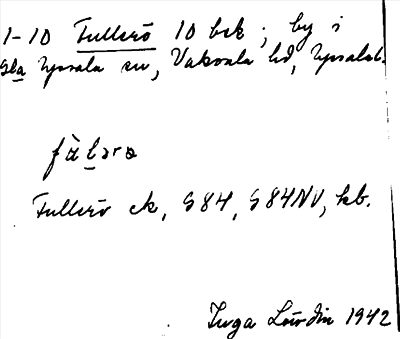 1-10 Fullerö 10 bek; by i
Gla Upsala sn, Vaksala hd, Upsala l.
fàlərɷ
Fullerö ek, G84, G84NV, kb.
Inga Lördin 1942